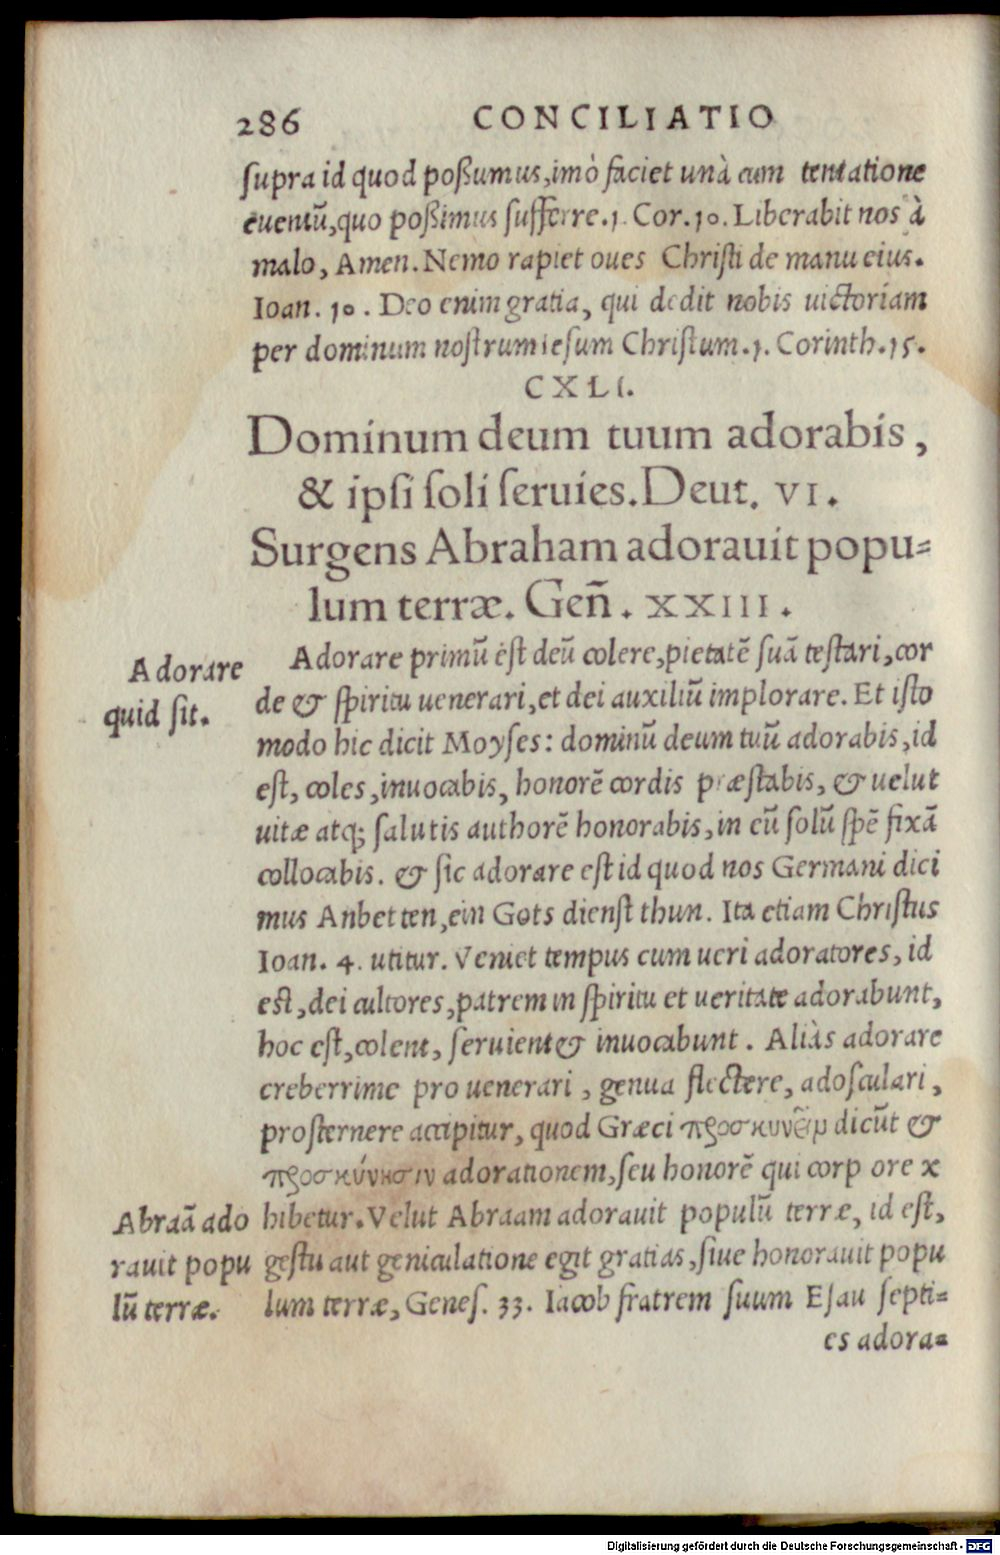 286 CONCILIATIO
supra id quod poßumus, imò faciet unà cum tentatione
euentū, quo poßimus sufferre. 1. Cor. 10. Liberabit nos à
malo, Amen. Nemo rapiet oues Christi de manu eius.
Ioan. 10. Deo enim gratia, qui dedit nobis uictoriam
per dominum nostrum iesum Christum. 1. Corinth. 15.
CXLI.
Dominum deum tuum adorabis,
& ipsi soli seruies. Deut. VI.
Surgens Abraham adorauit popu=
lum terræ. Geñ. XXIII.
Adorare
quid sit.
Adorare primū est deū colere, pietatē suā testari, cor
de & spiritu uenerari, et dei auxiliū implorare. Et isto
modo hic dicit Moyses: dominū deum tuū adorabis, id
est, coles, inuocabis, honorē cordis præstabis, & uelut
uitæ atq; salutis authorē honorabis, in eū solū spē fixā
collocabis. & sic adorare est id quod nos Germani dici
mus Anbetten, ein Gots dienst thun. Ita etiam Christus
Ioan. 4. utitur. Veniet tempus cum ueri adoratores, id
est, dei cultores, patrem in spiritu et ueritate adorabunt,
hoc est, colent, seruient & inuocabunt. Aliàs adorare
creberrime pro uenerari, genua flectere, adosculari,
prosternere accipitur, quod Græci προσκυνεῖν dicūt &
προσκύνησιν adorationem, seu honorē qui corpore x
Abraā ado
rauit popu
lū terræ.
hibetur. Velut Abraam adorauit populū terræ, id est,
gestu aut geniculatione egit gratias, siue honorauit popu
lum terræ, Genes. 33. Iacob fratrem suum Esau septi=
es adora=
Digitalisierung gefördert durch die Deutsche Forschungsgemeinschaft - DFG